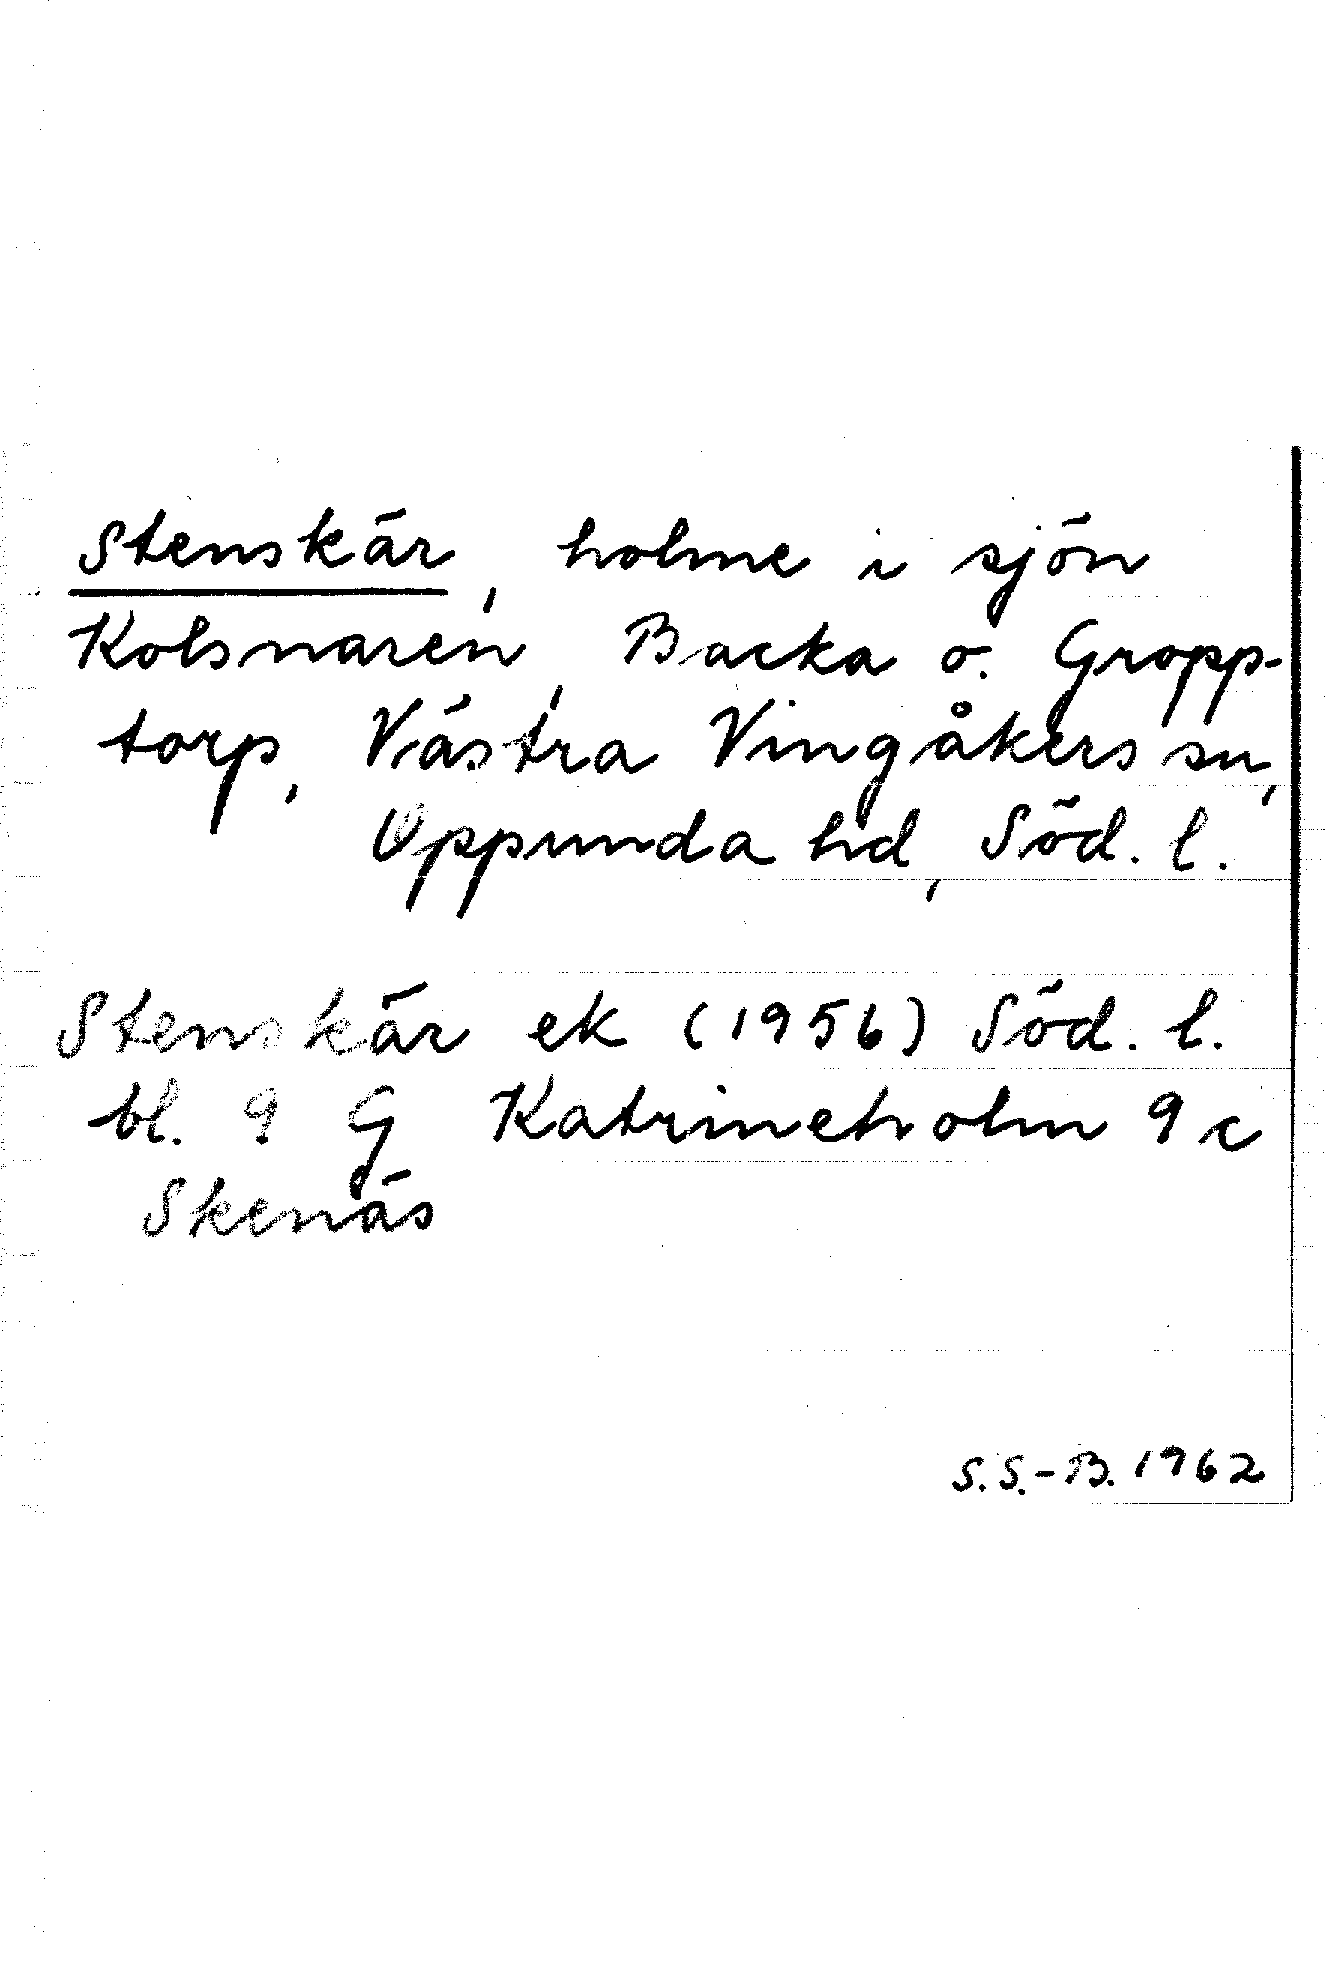 Stenskär, holme i sjön
Kolsnaren, Backa o. Gropp-
torp, Västra Vingåkers sn,
Oppunda hd, Söd. l.
Stenskär ek (1956) Söd. l.
bl. 9 G Katrineholm 9 c
Skenäs
S.S.-B. 1962